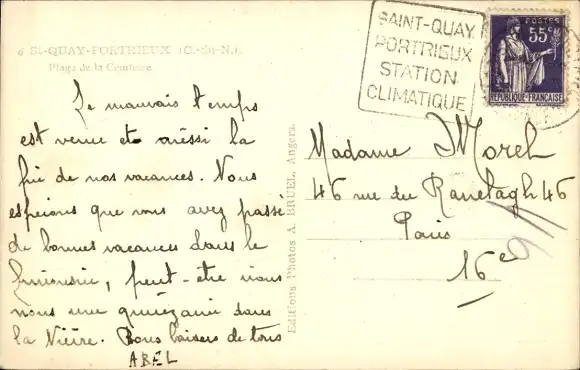 6 St-QUAY-PORTRIEUX (C.-du-N.).
Plage de la Comtesse
Le mauvais temps
est venu et aussi la
fin de nos vacances. Nous
espérons que vous avez passé
de bonnes vacances dans le
peut-être irons
nous une quinzaine dans
la Nièvre. Bons baisers de tous
ABEL
Editions Photos A. BRUEL, Angers.
SAINT-QUAY
PORTRIEUX
STATION
CLIMATIQUE
POSTES
55c
REPUBLIQUE-FRANÇAISE
Madame Morel
46 rue du Ranelagh 46
Paris
16e